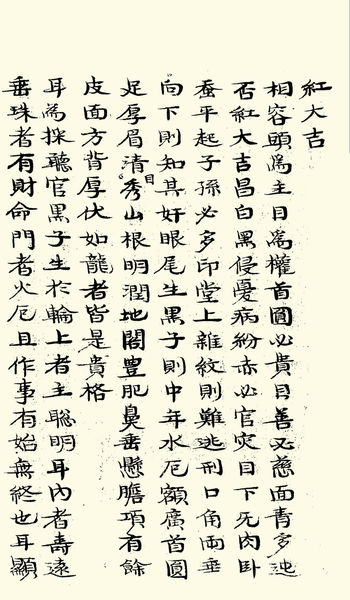 紅大吉
相容頭為主目為權首圓必貴目善必慈面青多迍
否紅大吉昌白黑侵憂病紛赤必官災目下旡肉臥
蚕平起子孫必多印堂上雜紋則難逃刑口角両垂
向下則知其奸眼尾生黑子則中年水厄額廣首圓
足厚眉清目秀山根明潤地閣豐肥鼻垂懸膽項有餘
皮面方背厚伏如龍者皆是貴格
耳為採聽官黑子生於輪上者主聰明耳內者壽遠
垂珠者有財命門者火厄且作事有始無終也耳顯